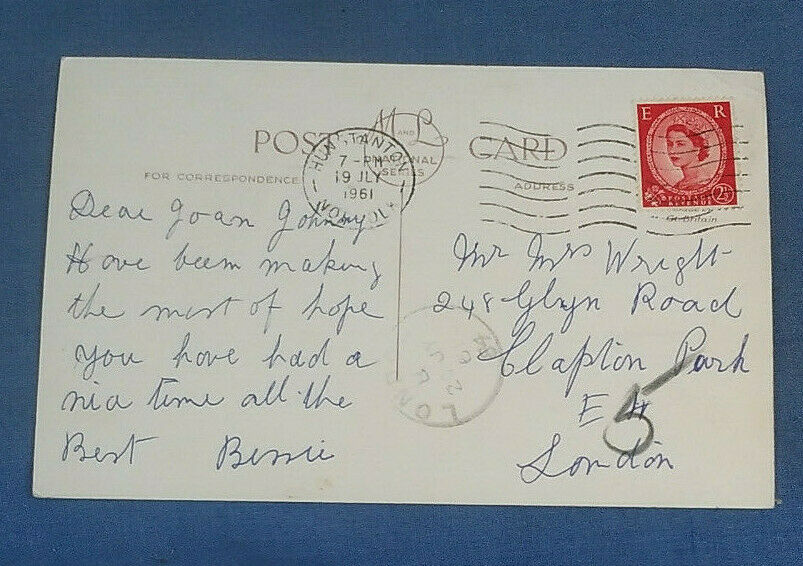 POST CARD
M AND L
NATIONAL
SERIES
FOR CORRESPONDENCE
ADDRESS
HUNSTANTON
7-
19 JLY
1961
NORFOLK
E R
2½
POSTAGE
REVENUE
Gt. Britain
Dear Joan Johnny
Have been making
the most of hope
you have had a
nia time all the
Best Bessie
Mr Mrs Wright
248 Glyn Road
Clapton Park
E 4
5
London
LOND